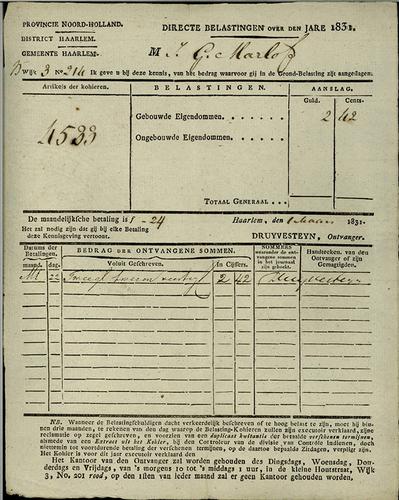 PROVINCIE NOORD-HOLLAND. DIRECTE BELASTINGEN OVER DEN JARE 1831.
DISTRICT HAARLEM.
GEMEENTE HAARLEM. M J. G. Marlof
Wijk 3 No 214 Ik geve u bij deze kennis, van het bedrag waarvoor gij in de Grond-Belasting zijt aangeslagen.
Artikels der kohieren. BELASTINGEN. AANSLAG.
Guld. Cents.
4533 Gebouwde Eigendommen. 2 42
Ongebouwde Eigendommen.
TOTAAL GENERAAL
De maandelijksche betaling is 1-24 Haarlem, den 1 Maart 1831.
Het zal nodig zijn dat gij bij elke Betaling
deze Kennisgeving vertoont. DRUYVESTEYN, Ontvanger.
Datums der Betalingen. BEDRAG DER ONTVANGENE SOMMEN. NOMMERS waaronder de ontvangene sommen in het journaal zijn geboekt. Handteeken. van den Ontvanger of zijn Gemagtigden.
maand. dag. Voluit Geschreven. In Cijffers.
Mt 22 2 42 Druyvesteyn
NB. Wanneer de Belastingschuldigen dacht verkeerdelijk beschreven of te hoog belast te zijn, moet hij binnen
drie maanden, te rekenen van den dag waarop de Belasting-Kohieren zullen zijn executoir verklaard, zijne
reclamatie op zegel geschreven, en voorzien van een duplicaat kwitantie der betaalde verschenen termijnen,
alsmede van een Extract uit het Kohier, bij den Controleur van de divisie van Contrôle indienen, doch
niettemin tot voortduring der betaling der verschenen termijnen, op de daartoe bepaalde Zitdagen, verpligt zijn.
Het Kohier is voor dit jaar executoir verklaard den
Het Kantoor van den Ontvanger zal worden gehouden des Dingsdags, Woensdag, Donderdags
en Vrijdags, van 's morgens 10 tot 's middags 1 uur, in de kleine Houtstraat, Wijk
3, No. 201 rood, op den 18en van ieder maand zal er geen Kantoor gehouden worden.